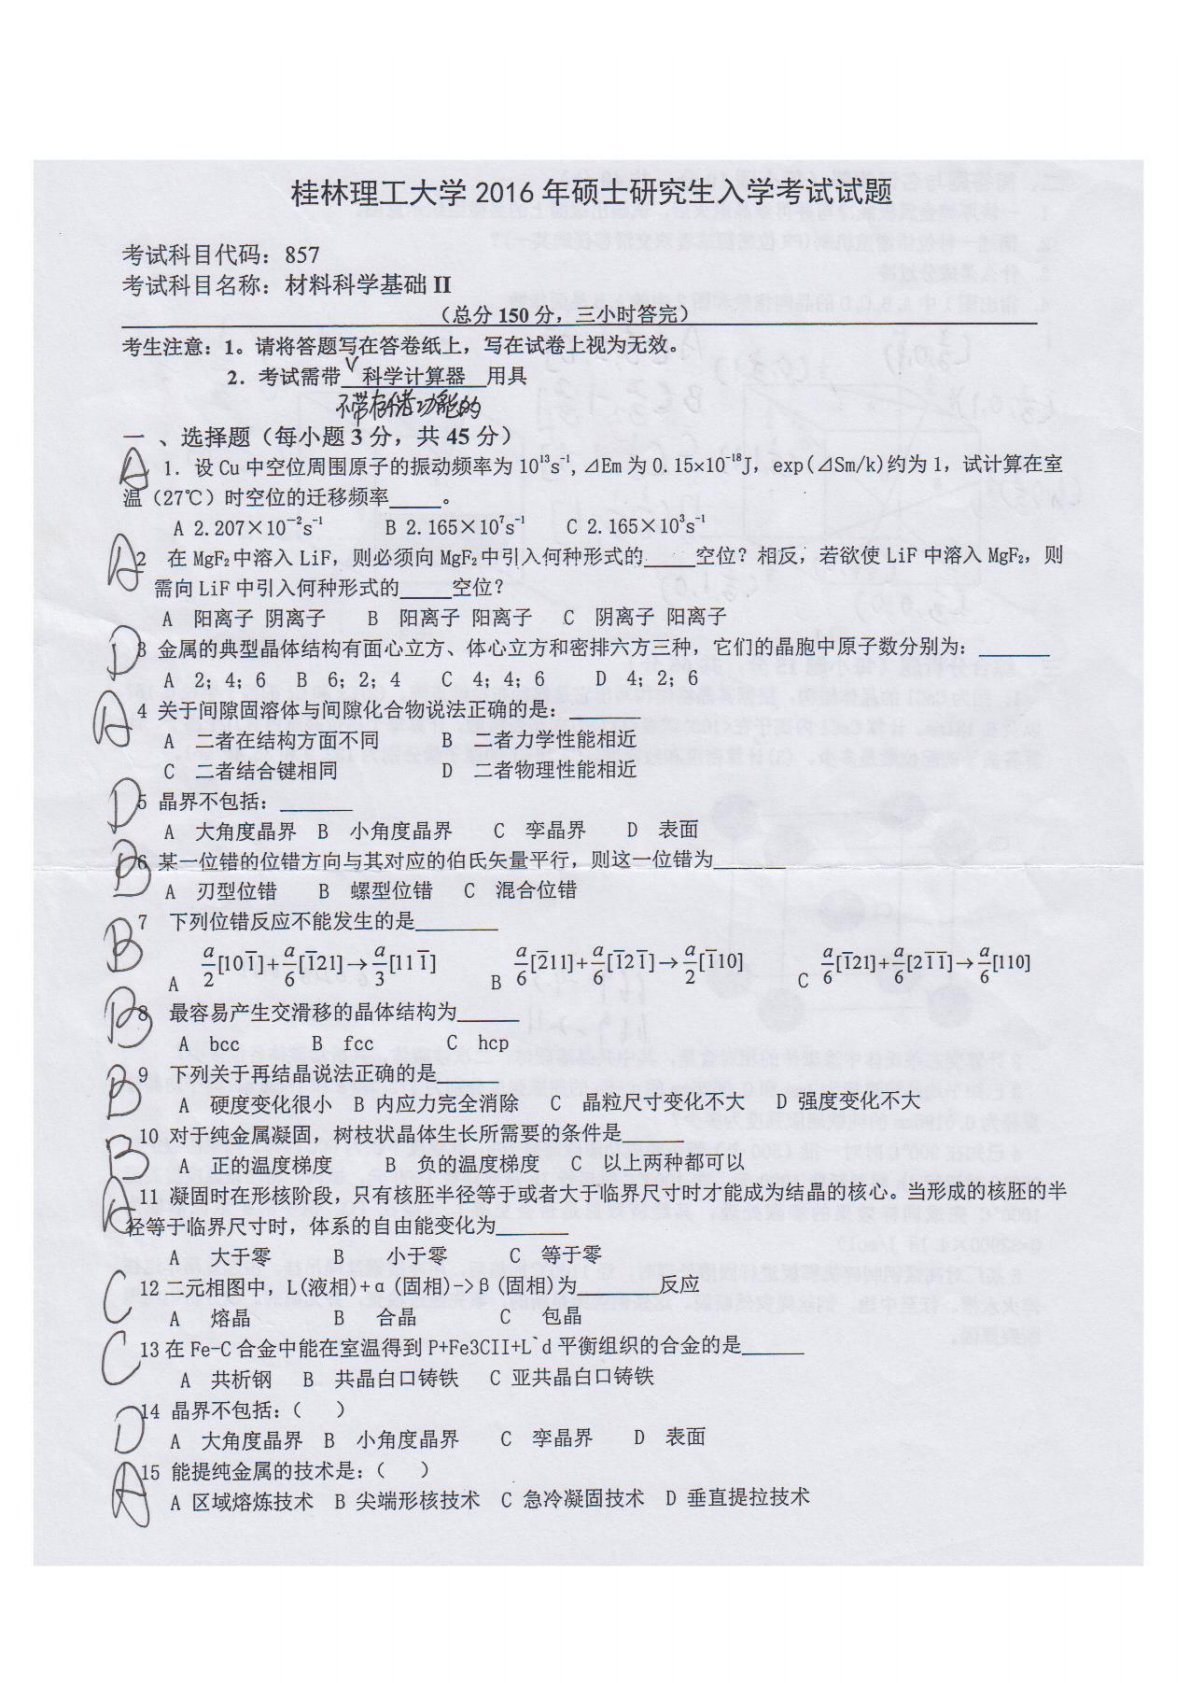 桂林理工大学 2016 年硕士研究生入学考试试题
考试科目代码：857
考试科目名称：材料科学基础 II
（总分 150 分，三小时答完）
考生注意：1。请将答题写在答卷纸上，写在试卷上视为无效。
2．考试需带 V 科学计算器 用具
不带存储功能的
一 、选择题（每小题 3 分，共 45 分）
A 1．设 Cu 中空位周围原子的振动频率为 10¹³s⁻¹,⊿Em 为 0.15×10⁻¹⁸J，exp(⊿Sm/k)约为 1，试计算在室
温（27℃）时空位的迁移频率_____。
A 2.207×10⁻²s⁻¹ B 2.165×10⁷s⁻¹ C 2.165×10³s⁻¹
A 2 在 MgF₂中溶入 LiF，则必须向 MgF₂中引入何种形式的_____空位？相反，若欲使 LiF 中溶入 MgF₂，则
需向 LiF 中引入何种形式的_____空位？
A 阳离子 阴离子 B 阳离子 阳离子 C 阴离子 阳离子
D 3 金属的典型晶体结构有面心立方、体心立方和密排六方三种，它们的晶胞中原子数分别为：_______
A 2；4；6 B 6；2；4 C 4；4；6 D 4；2；6
A 4 关于间隙固溶体与间隙化合物说法正确的是：_______
A 二者在结构方面不同 B 二者力学性能相近
C 二者结合键相同 D 二者物理性能相近
D 5 晶界不包括：_______
A 大角度晶界 B 小角度晶界 C 孪晶界 D 表面
B 6 某一位错的位错方向与其对应的伯氏矢量平行，则这一位错为_______
A 刃型位错 B 螺型位错 C 混合位错
B 7 下列位错反应不能发生的是________
A a/2[101̅]+a/6[1̅21]→a/3[111̅] B a/6[2̅11]+a/6[1̅21̅]→a/2[1̅10] C a/6[1̅21]+a/6[21̅1̅]→a/6[110]
B 8 最容易产生交滑移的晶体结构为______
A bcc B fcc C hcp
B 9 下列关于再结晶说法正确的是______
A 硬度变化很小 B 内应力完全消除 C 晶粒尺寸变化不大 D 强度变化不大
B 10 对于纯金属凝固，树枝状晶体生长所需要的条件是______
A 正的温度梯度 B 负的温度梯度 C 以上两种都可以
A 11 凝固时在形核阶段，只有核胚半径等于或者大于临界尺寸时才能成为结晶的核心。当形成的核胚的半
径等于临界尺寸时，体系的自由能变化为_______
A 大于零 B 小于零 C 等于零
C 12 二元相图中，L(液相)+α(固相)->β(固相)为________反应
A 熔晶 B 合晶 C 包晶
C 13 在 Fe-C 合金中能在室温得到 P+Fe3CII+L`d 平衡组织的合金的是______
A 共析钢 B 共晶白口铸铁 C 亚共晶白口铸铁
D 14 晶界不包括：（ ）
A 大角度晶界 B 小角度晶界 C 孪晶界 D 表面
A 15 能提纯金属的技术是：（ ）
A 区域熔炼技术 B 尖端形核技术 C 急冷凝固技术 D 垂直提拉技术